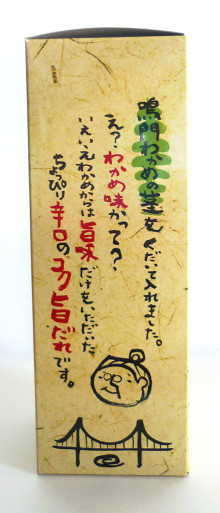 鳴門わかめの茎を
くだいて入れました。
え？わかめ味かって？
いえいえわかめからは旨味だけをいただいた
ちょっぴり辛口のコク旨だれです。